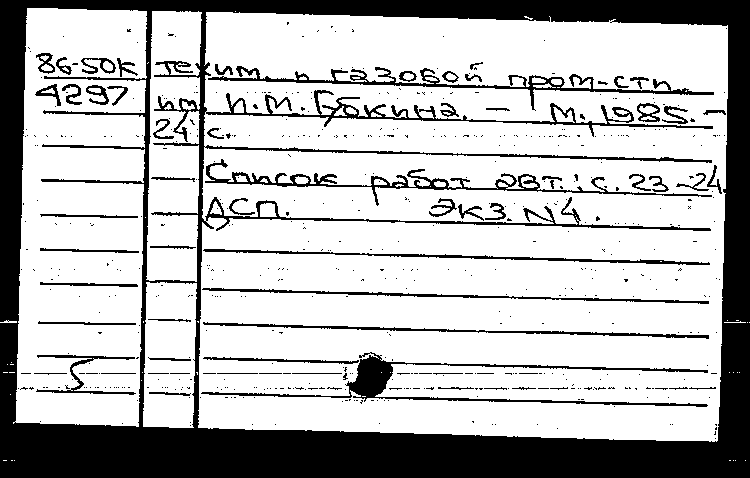 86-50К техим. и газовой пром-сти
4297 им. И.М. Губкина. – М., 1985. –
24 с.
Список работ авт.: с. 23-24.
ДСП. Экз. N4.
5